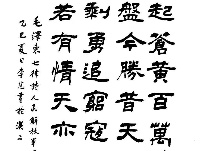 起蒼黃百萬
盤今勝昔天
剩勇追窮寇
若有情天亦
毛澤東七律詩人民解放軍
乙巳夏